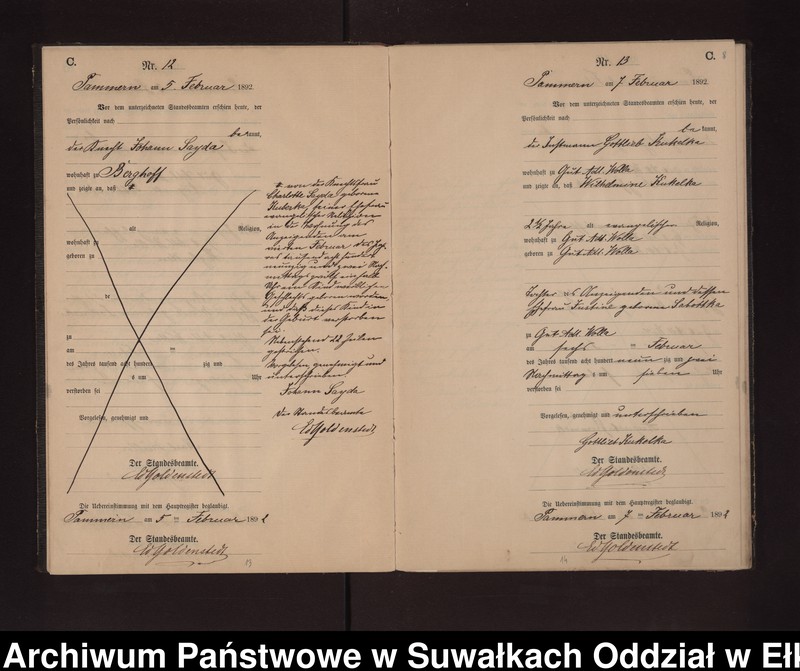 C.
Nr. 12
Tammern am 5. Februar 1892.
Vor dem unterzeichneten Standesbeamten erschien heute, der
Persönlichkeit nach
be kannt,
der Knecht Johann Sayda
wohnhaft zu Berghoff
und zeigte an, daß
alt Religion,
wohnhaft zu
geboren zu
de
zu
am ten
des Jahres tausend acht hundert zig und
um Uhr
verstorben sei
Vorgelesen, genehmigt und
Der Standesbeamte.
EdGoldenstedt
Die Uebereinstimmung mit dem Hauptregister beglaubigt.
Tammern am 5 ten Februar 1892
Der Standesbeamte.
EdGoldenstedt
von der Knechtsfrau
Charlotte Sayda geborene
seiner Ehefrau
evangelischer Religion
in der Wohnung des
Anzeigenden am
Februar des Jah-
res tausend acht hundert
neunzig und zwei Nach-
mittags
Uhr ein Kind
Geschlechts geboren worden
und daß dieses Kind in
der Geburt verstorben
sei.
Nebenstehend 22 Zeilen
gestrichen.
Vorgelesen, genehmigt und
unterschrieben
Johann Sayda
Der Standesbeamte
EdGoldenstedt
C. 8
Nr. 13
Tammern am 7. Februar 1892.
Vor dem unterzeichneten Standesbeamten erschien heute, der
Persönlichkeit nach
be kannt,
der Instmann Gottlieb Kukelka
wohnhaft zu Gut Adl. Wolla
und zeigte an, daß Wilhelmine Kukelka
2 1/2 Jahre alt evangelischer Religion,
wohnhaft zu Gut Adl. Wolla
geboren zu Gut Adl. Wolla
Tochter des Anzeigenden und dessen
Ehefrau Justine geborene Sabottka
zu Gut Adl. Wolla
am sechs ten Februar
des Jahres tausend acht hundert neun zig und zwei
Nachmittag s um sieben Uhr
verstorben sei
Vorgelesen, genehmigt und unterschrieben
Gottlieb Kukelka
Der Standesbeamte.
EdGoldenstedt
Die Uebereinstimmung mit dem Hauptregister beglaubigt.
Tammern am 7 ten Februar 1892
Der Standesbeamte.
EdGoldenstedt
Archiwum Państwowe w Suwałkach Oddział w Eł